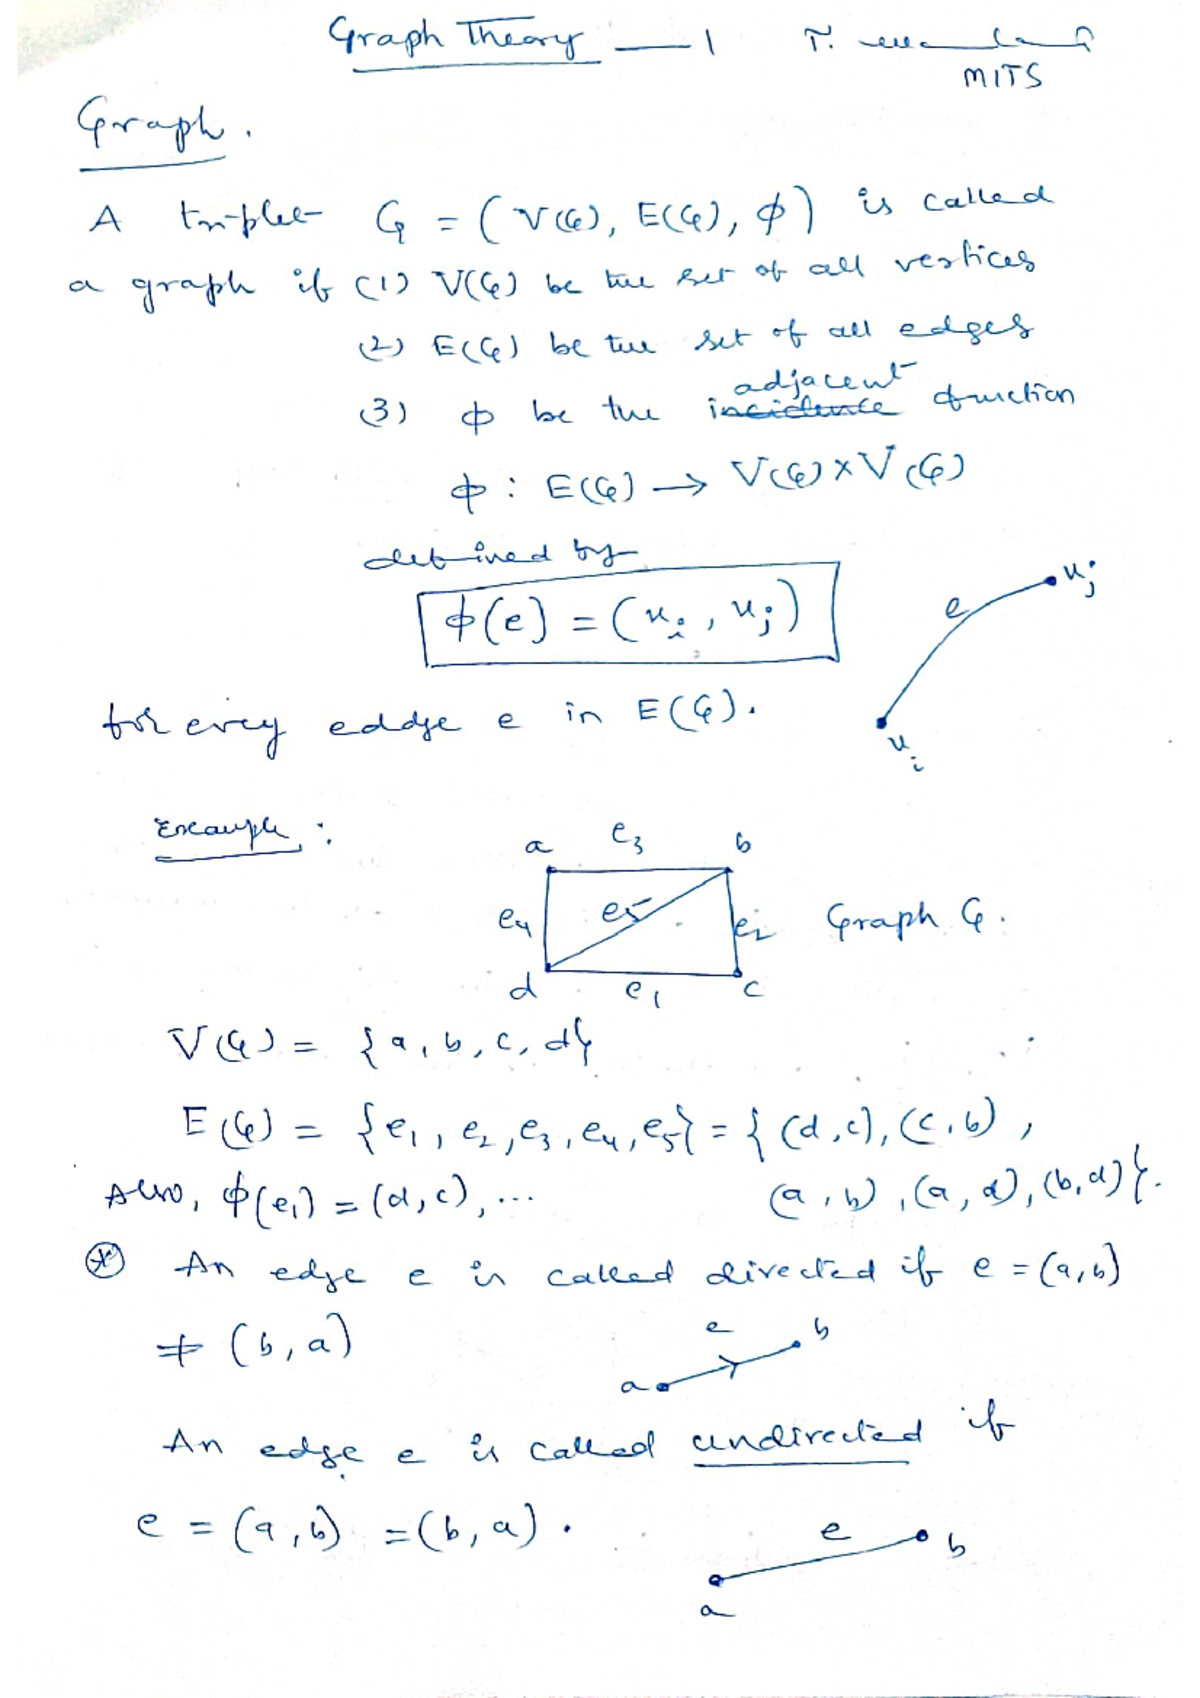 Graph Theory — 1 T.
MITS
Graph.
A triplet G = (V(G), E(G), ϕ) is called
a graph if (1) V(G) be the set of all vertices
(2) E(G) be the set of all edges
adjacent
(3) ϕ be the incidence function
ϕ : E(G) → V(G) × V(G)
defined by
ϕ(e) = (u_i, u_j)
e u_j
u_i
for every eddge e in E(G).
Example :
a e3 b
e4 e5 e2 Graph G.
d e1 c
V(G) = {a, b, c, d}
E(G) = {e1, e2, e3, e4, e5} = {(d,c), (c,b),
Also, ϕ(e1) = (d,c), ... (a,b), (a,d), (b,d)}.
* An edge e is called directed if e = (a,b)
≠ (b,a)
e b
a
An edge e is called undirected if
e = (a,b) = (b,a).
e b
a